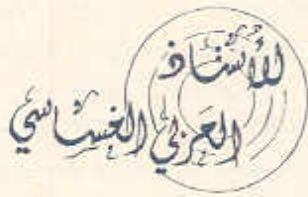 الأستاذ
العربي الخساسي